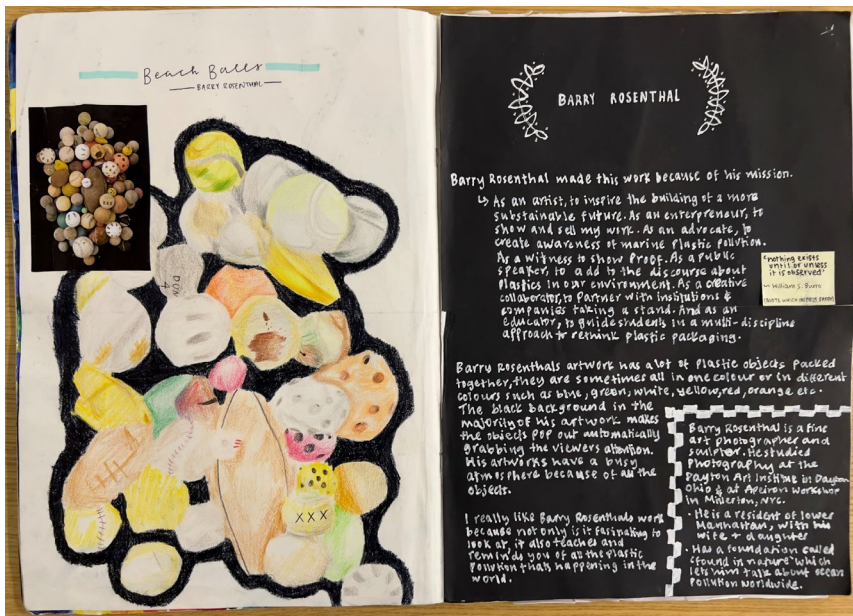 Beach Balls
BARRY ROSENTHAL
DUN
4
XXX
BARRY ROSENTHAL
Barry Rosenthal made this work because of his mission.
↳ As an artist, to inspire the building of a more
substainable future. As an enterpreneur, to
show and sell my work. As an advocate, to
create awareness of marine plastic pollution.
As a witness to show proof. As a public
speaker, to add to the discourse about
plastics in our environment. As a creative
collaborator, to partner with institutions &
companies taking a stand. And as an
educator, to guide students in a multi-discipline
approach to rethink plastic packaging.
"nothing exists
until or unless
it is observed"
~ William S. Burro
(quote which inspires Barry)
Barry Rosenthals artwork has a lot of plastic objects packed
together, they are sometimes all in one colour or in different
colours such as blue, green, white, yellow, red, orange etc.
The black background in the
majority of his artwork makes
the objects pop out automatically
grabbing the viewers attention.
His artworks have a busy
atmosphere because of all the
objects.
I really like Barry Rosenthals work
because not only is it fasinating to
look at, it also teaches and
reminds you of all the plastic
pollution thats happening in the
world.
Barry Rosenthal is a fine
art photographer and
sculptor. He studied
Photography at the
Dayton Art Institute in Dayton
Ohio & at Apeiron Workshop
in Millerton, NYC.
- He is a resident of lower
Manhattan, with his
wife + daughter
- Has a foundation called
"found in nature" which
lets him talk about ocean
pollution worldwide.